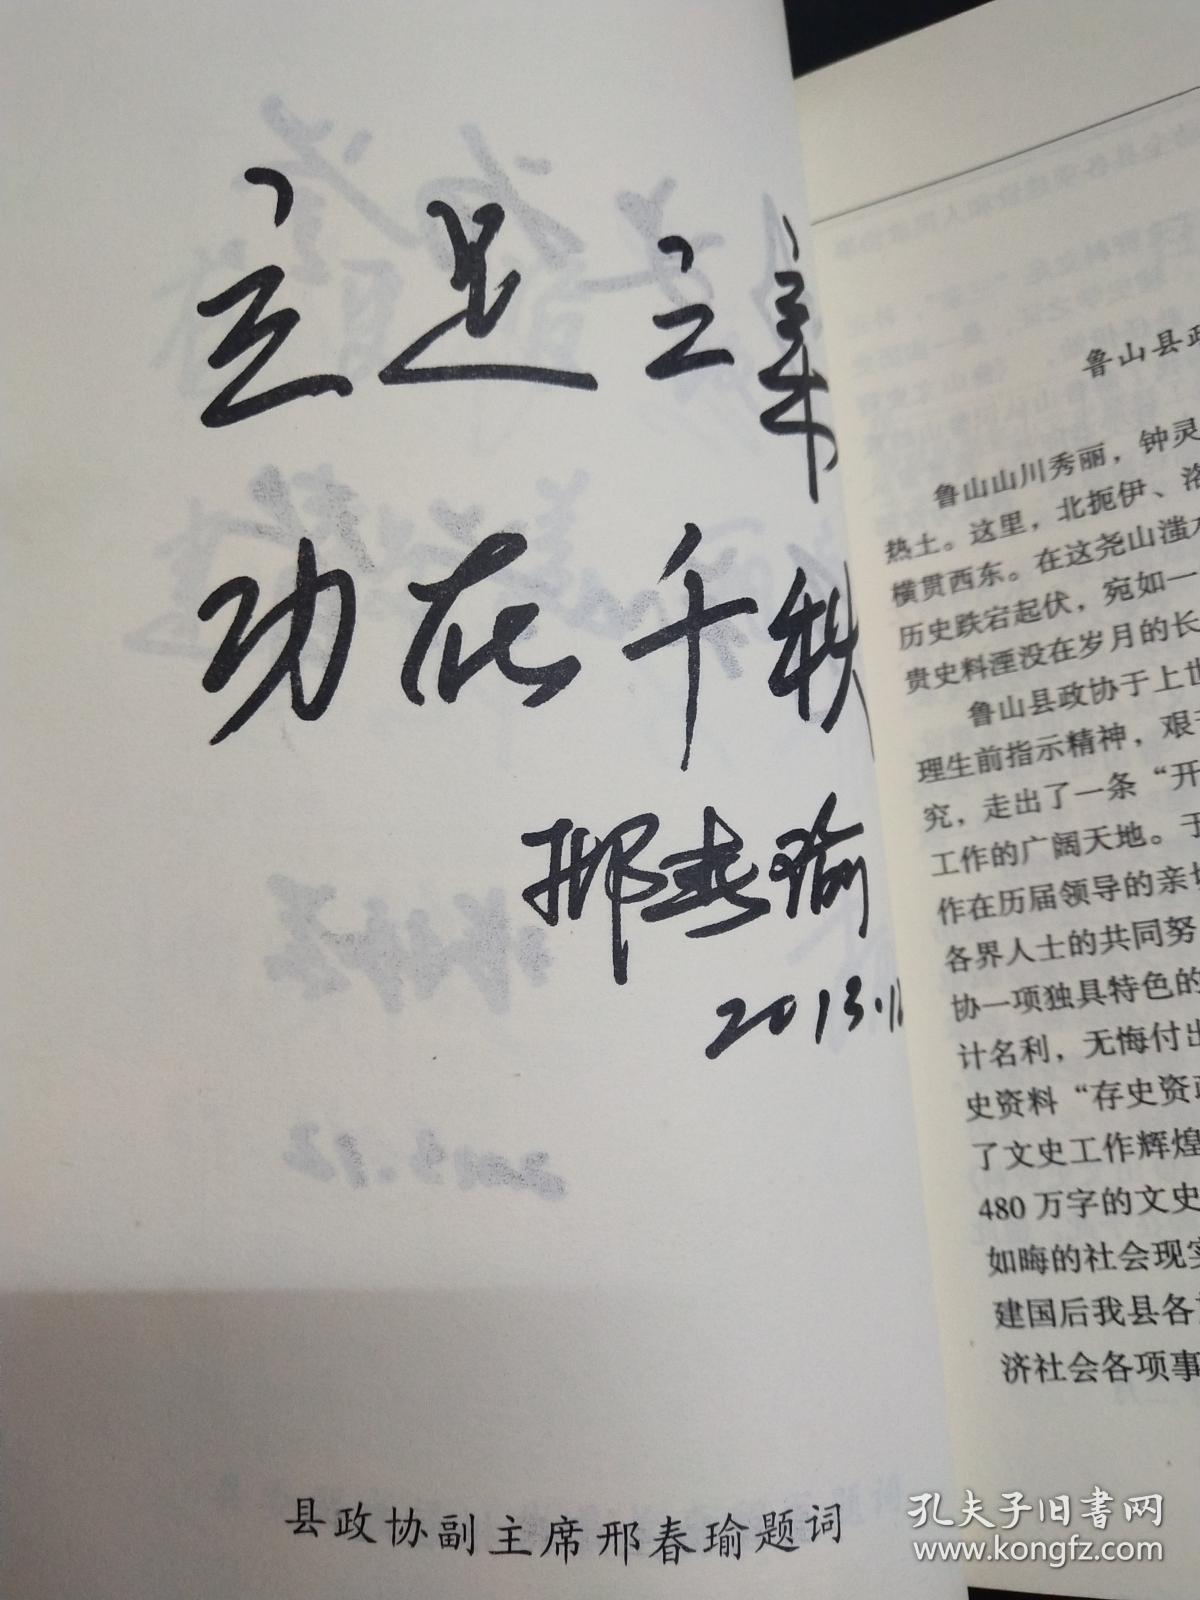 立足
功在千秋
邢春瑜
2013.1
县政协副主席邢春瑜题词
鲁山县政
鲁山山川秀丽，钟灵
热土。这里，北扼伊、洛
横贯西东。在这尧山滍水
历史跌宕起伏，宛如一
贵史料湮没在岁月的长
鲁山县政协于上世
理生前指示精神，艰辛
究，走出了一条“开
工作的广阔天地。于
作在历届领导的亲切
各界人士的共同努
协一项独具特色的
计名利，无悔付出
史资料“存史资政
了文史工作辉煌
480万字的文史
如晦的社会现实
建国后我县各
济社会各项事
孔夫子旧书网
www.kongfz.com